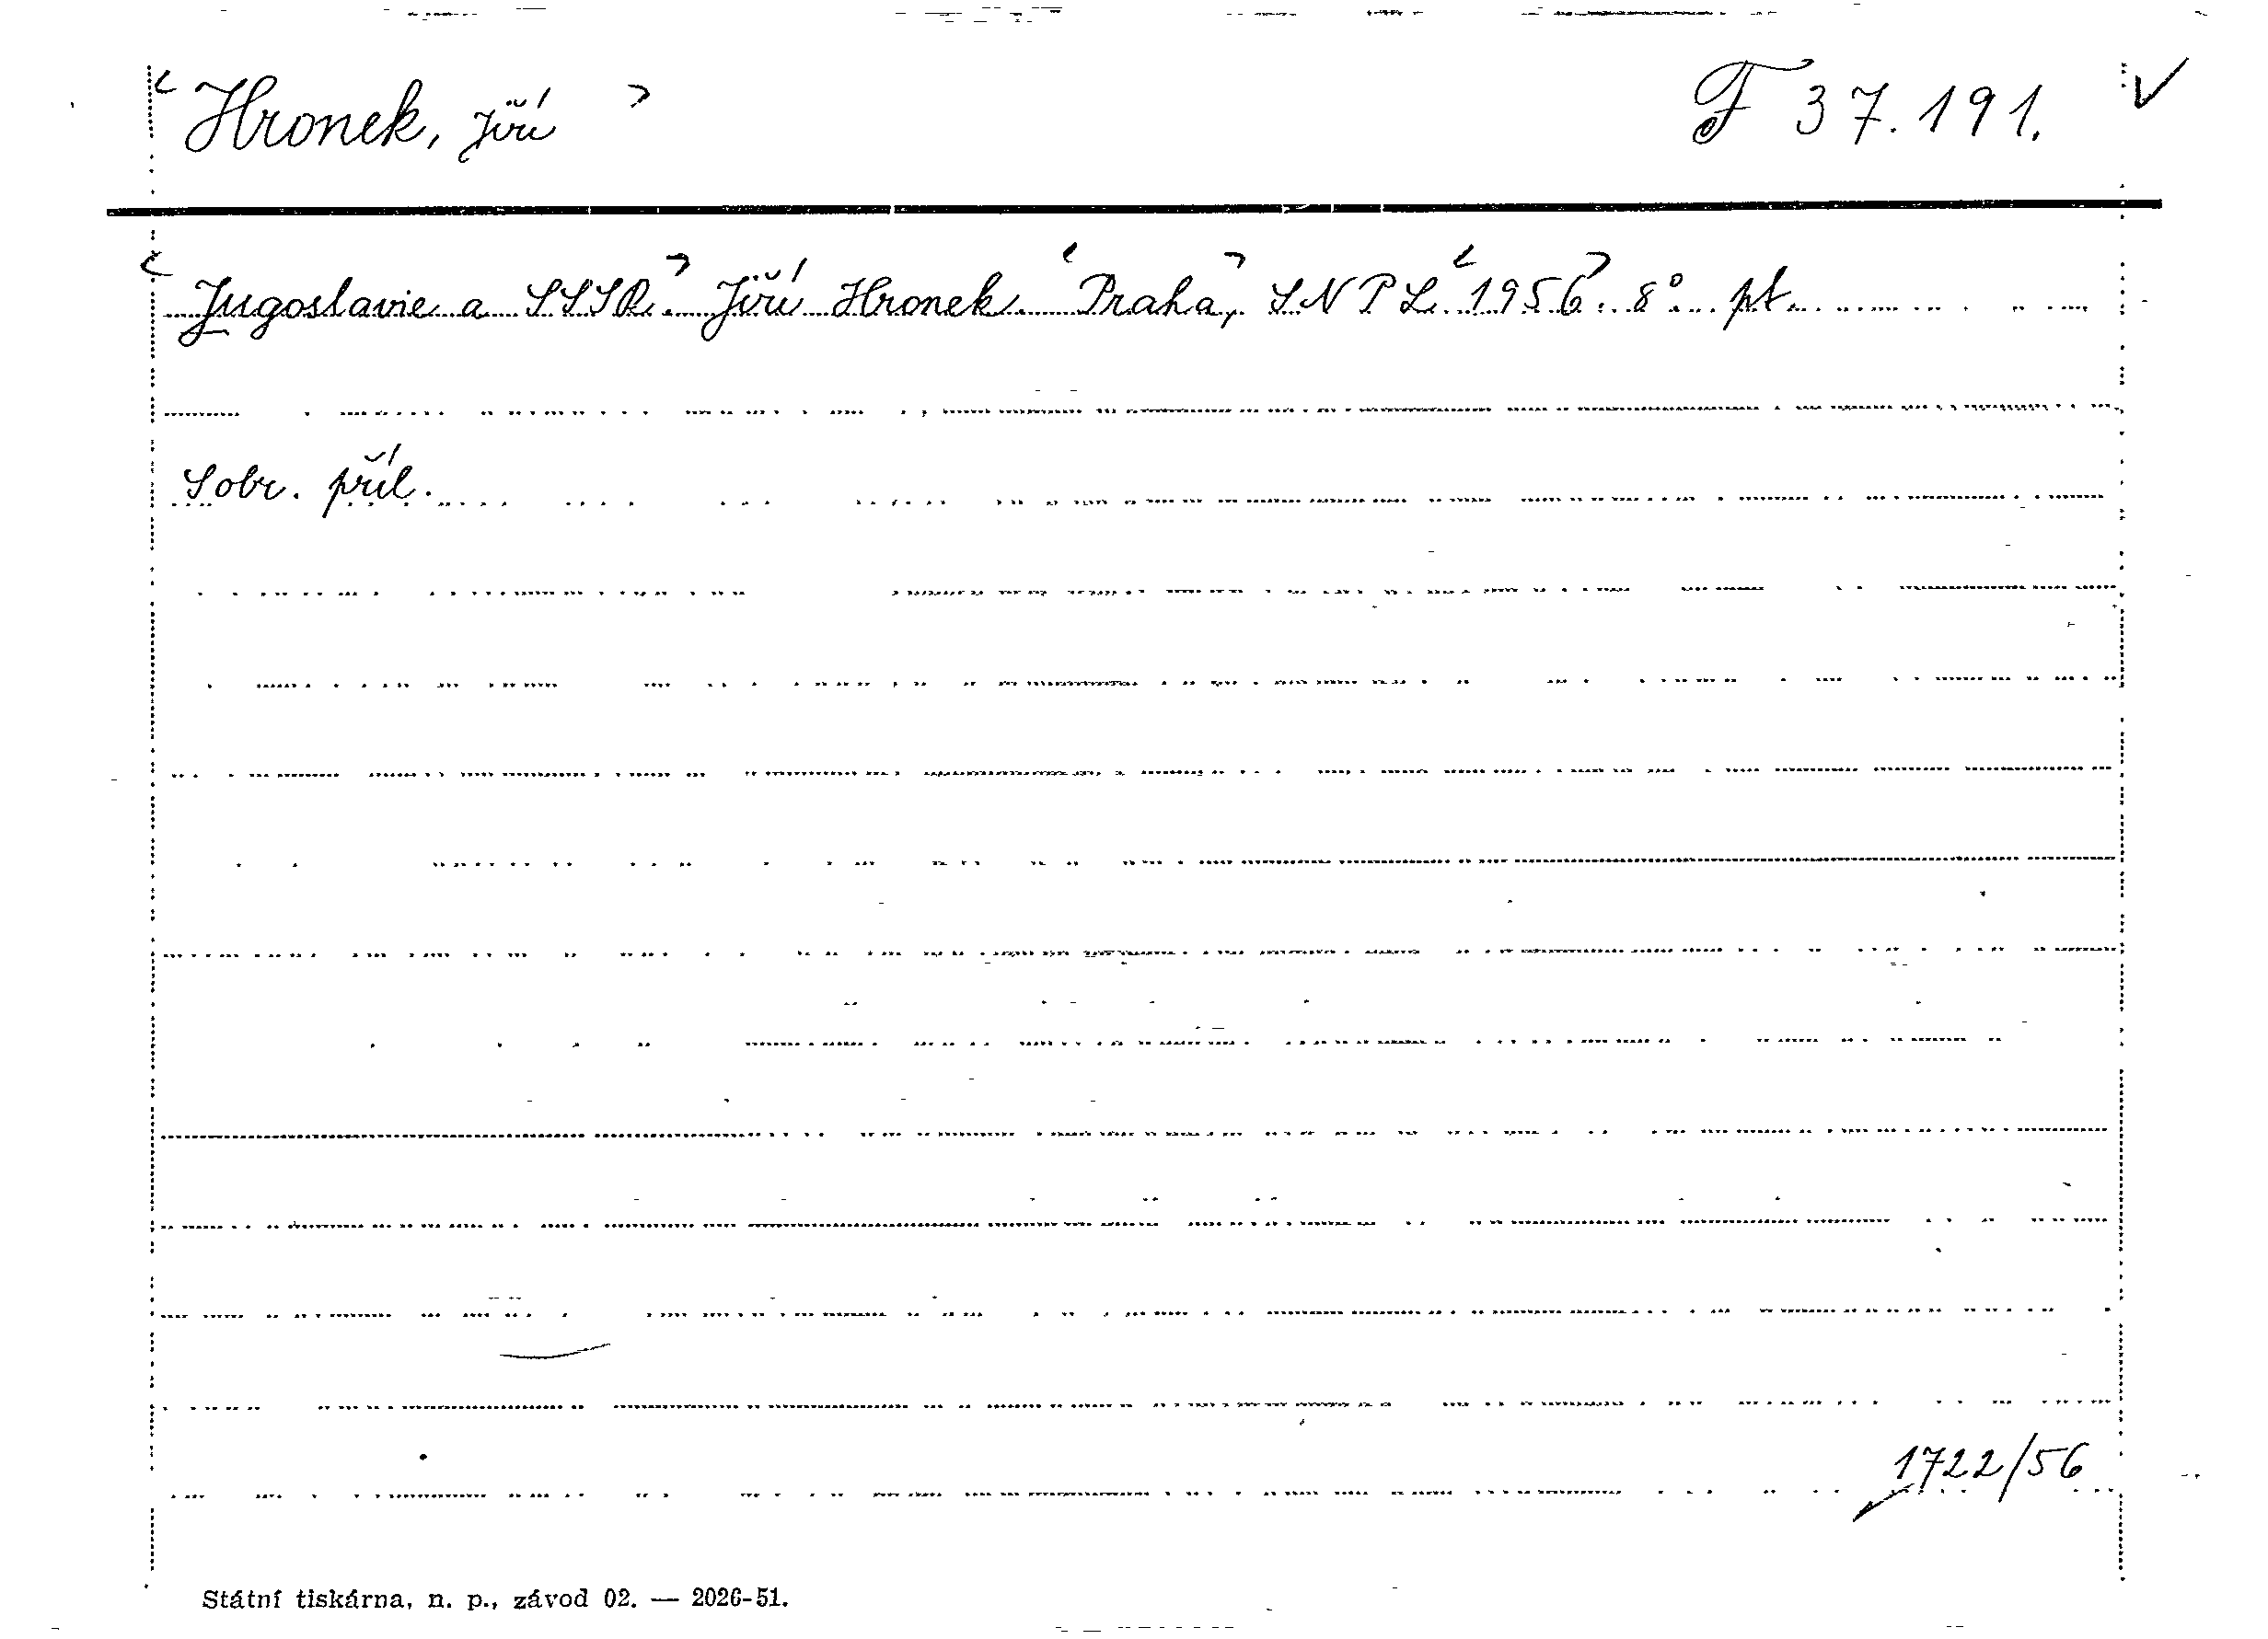 Hronek, Jiří F 37.191.
Jugoslavie a SSSR. Jiří Hronek. Praha, SNPL 1956. 8°. pt.
S obr. příl.
1722/56
Státní tiskárna, n. p., závod 02. — 2026-51.